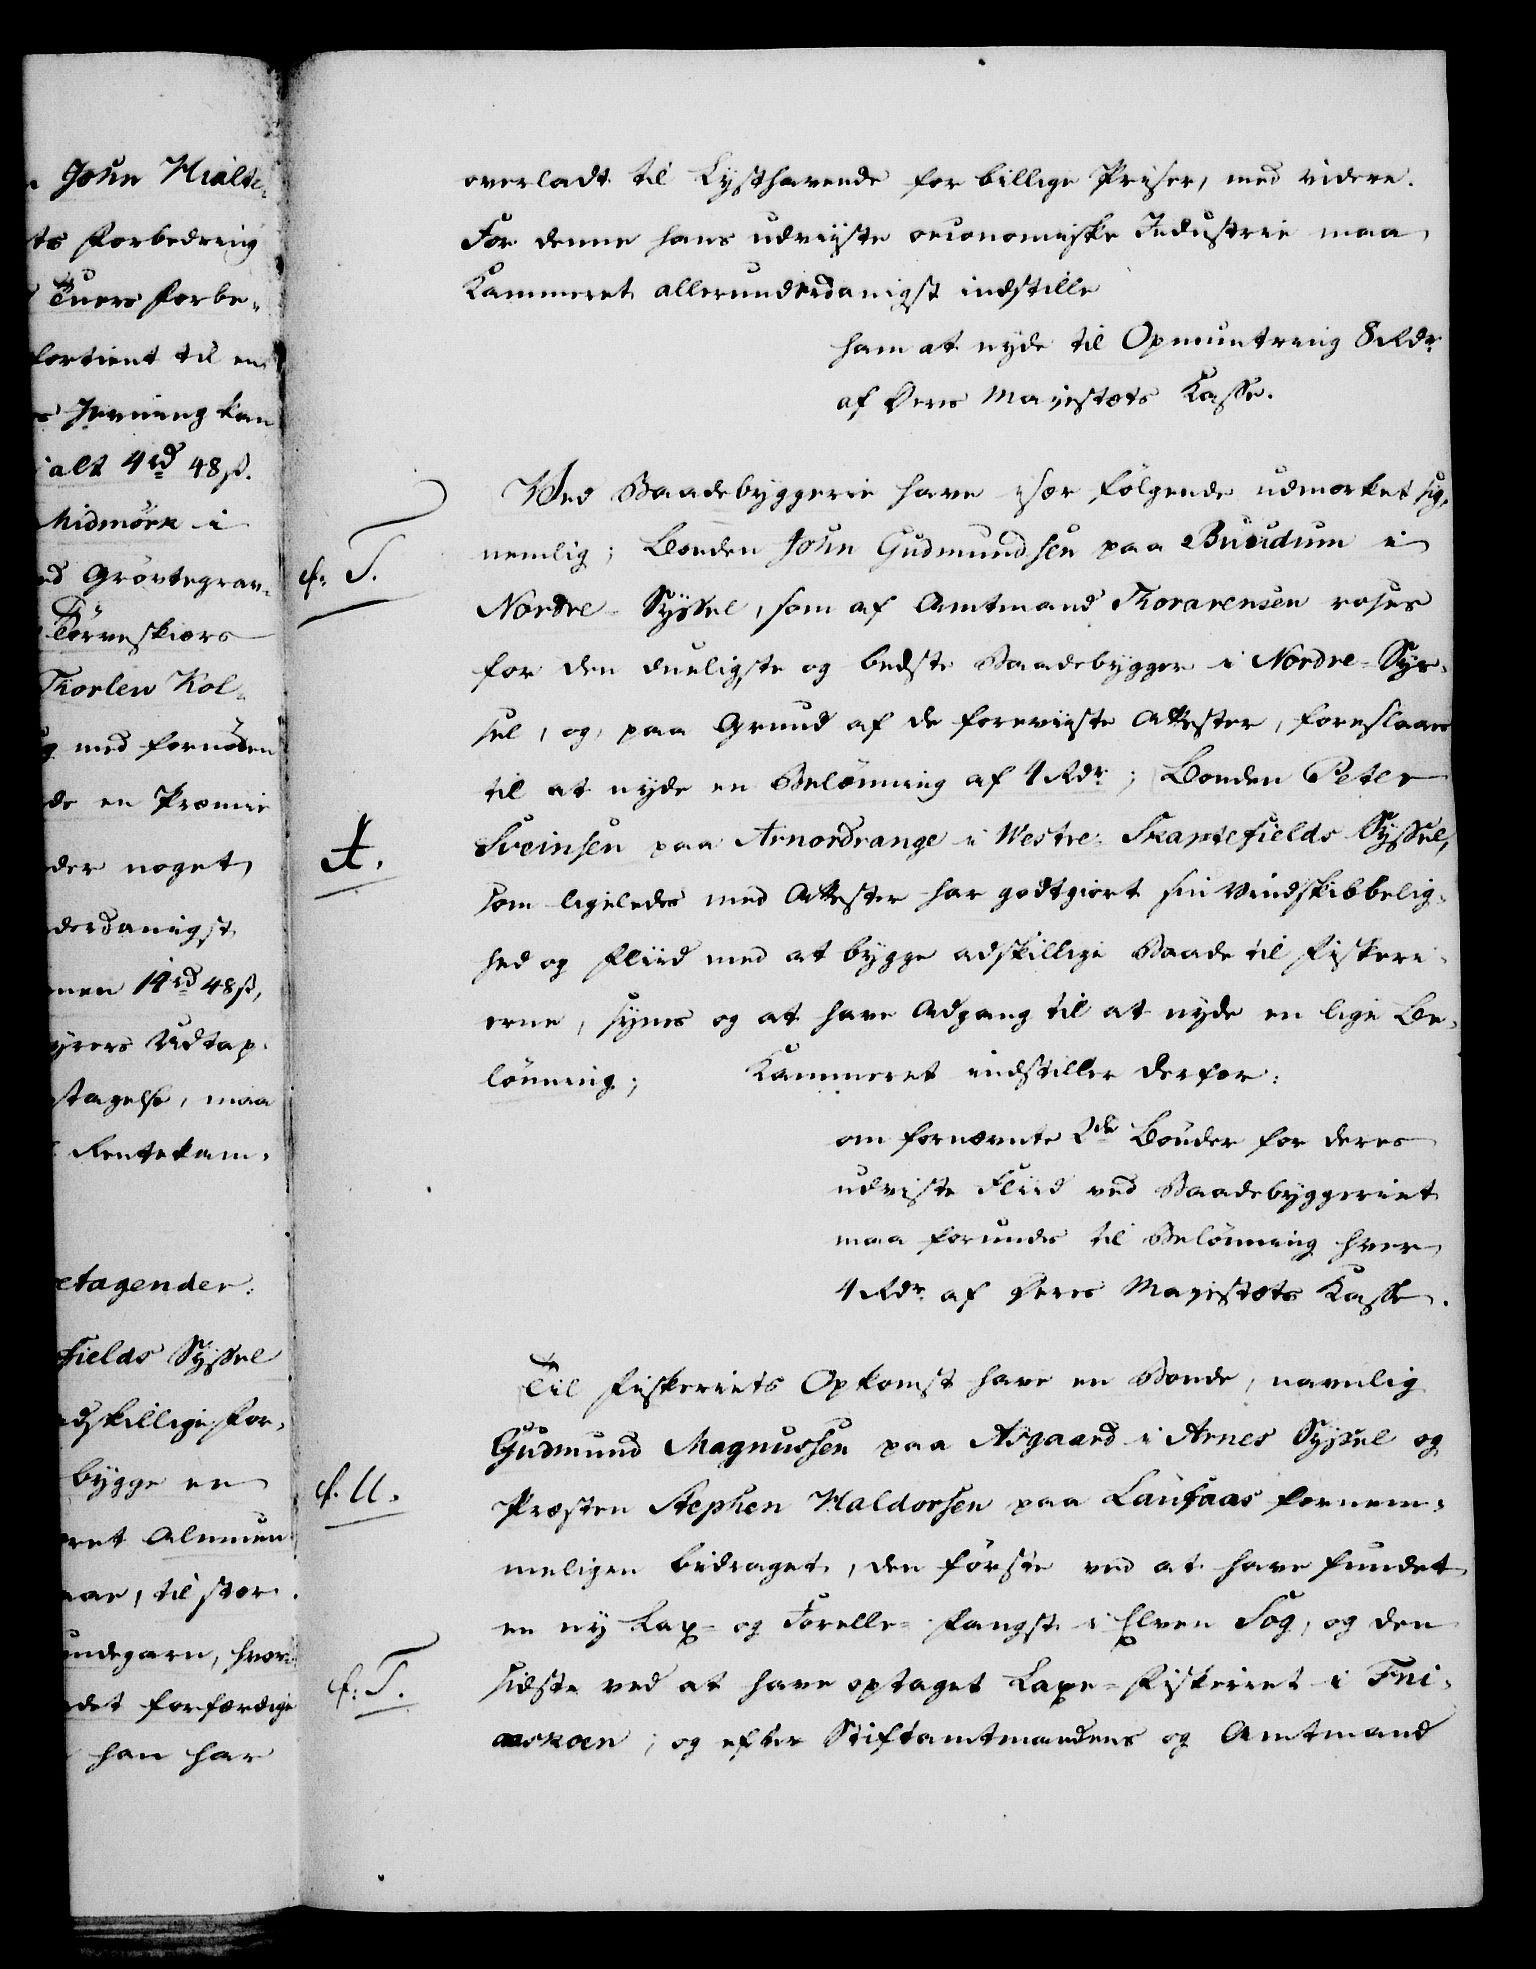 John Hialte-
ts Forbedring
Tuers Forbe-
fortient til en
Jevning kan
ialt 4rd 48ß.
Midmörk i
ed Grøvtegrav-
Törveskiærs
Thorlew Kol-
med fornöden
de en Præmie
der noget
derdanigst
nen 14rd 48ß,
yrers Udtap-
tagelse, maa
Rentekam-
etagender:
Fields Syssel
dskillige For-
bygge en
ret Almuen
aar, til stor
undegarn, hvor-
det forfærdige
han har
overladt til Lysthavende for billige Priser, med videre.
For denne hans udviiste oeconomiske Industrie maa
Kammeret allerunderdanigst indstille
ham at nyde til Opmuntring 8 Rdr
af Deres Majestæts Kasse.
Ved Baadebyggerie have især følgende udmærket sig,
f. T.
nemlig; Bonden John Gudmundsen paa Buudum i
Nordre-Syssel, som af Amtmand Thorarensen roses
for den dueligste og bedste Baadebygger i Nordre-Sys-
sel, og, paa Grund af de foreviiste Attester, foreslaaes
til at nyde en Belönning af 4 Rdr; Bonden Peter
A.
Sveinsen paa Arnordrange i Westre-Skaptefields Syssel,
som ligeledes med Attester har godtgiort sin Vindskibbelig-
hed og Fliid med at bygge adskillige Baade til Fiskeri-
erne, synes og at have Adgang til at nyde en lige Be-
lönning; Kammeret indstiller derfor:
om fornævnte 2de Bönder for deres
udviste Fliid ved Baadebyggeriet
maa forundes til Belönning hver
4 Rdr af Deres Majestæts Kasse.
Til Fiskeriets Opkomst have en Bonde, navnlig
Gudmund Magnussen paa Asgaard i Arnes Syssel og
f. U.
Præsten Stephen Haldorsen paa Laufaas fornem-
meligen bidraget, den første ved at have fundet
en ny Lax- og Forelle-Fangst i Elven Sog, og den
f. T.
sidste ved at have optaget Laxe-Fiskeriet i Fni-
oskoen; og efter Stiftamtmandens og Amtmand